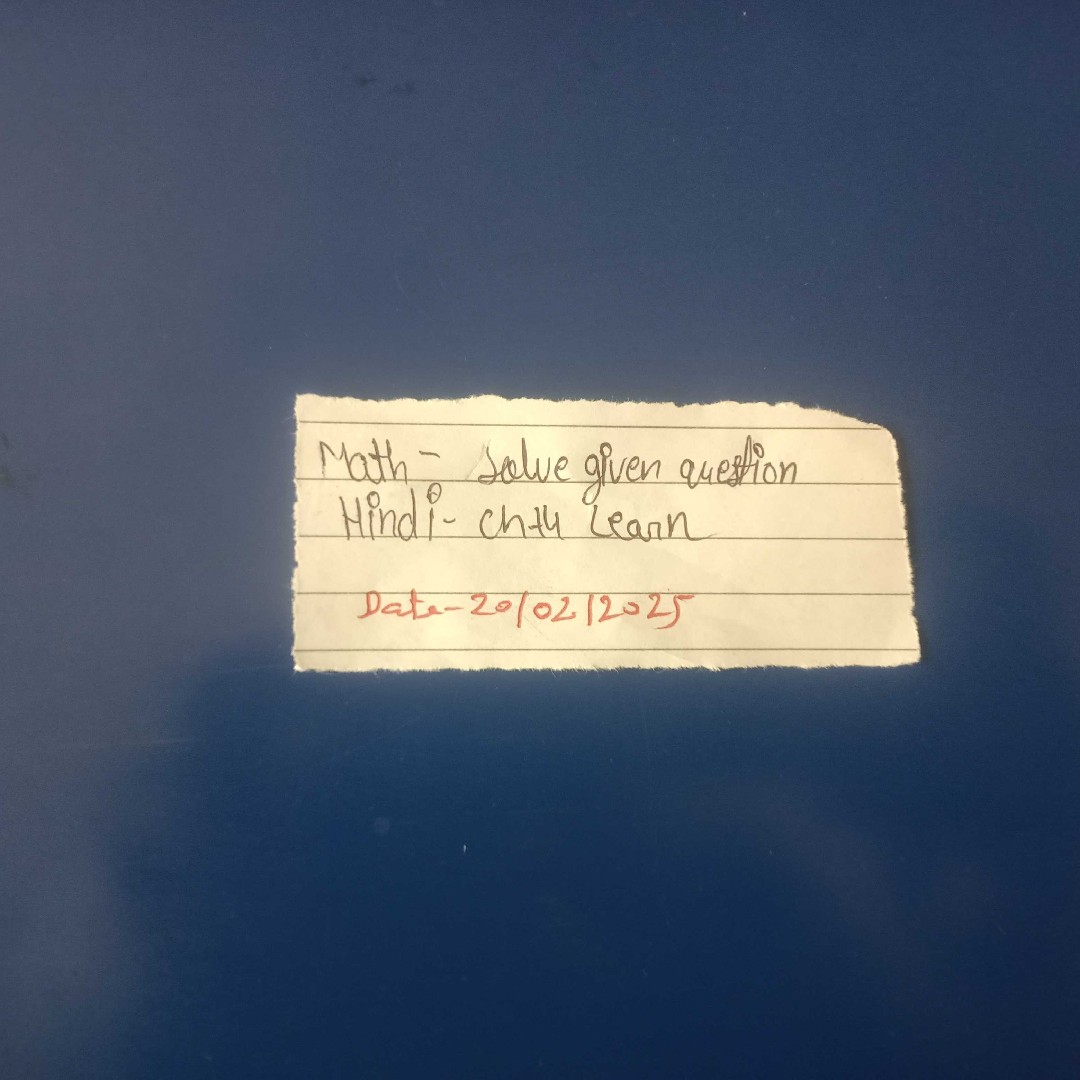 Math - solve given question
Hindi - ch-14 Learn
Date - 20/02/2025